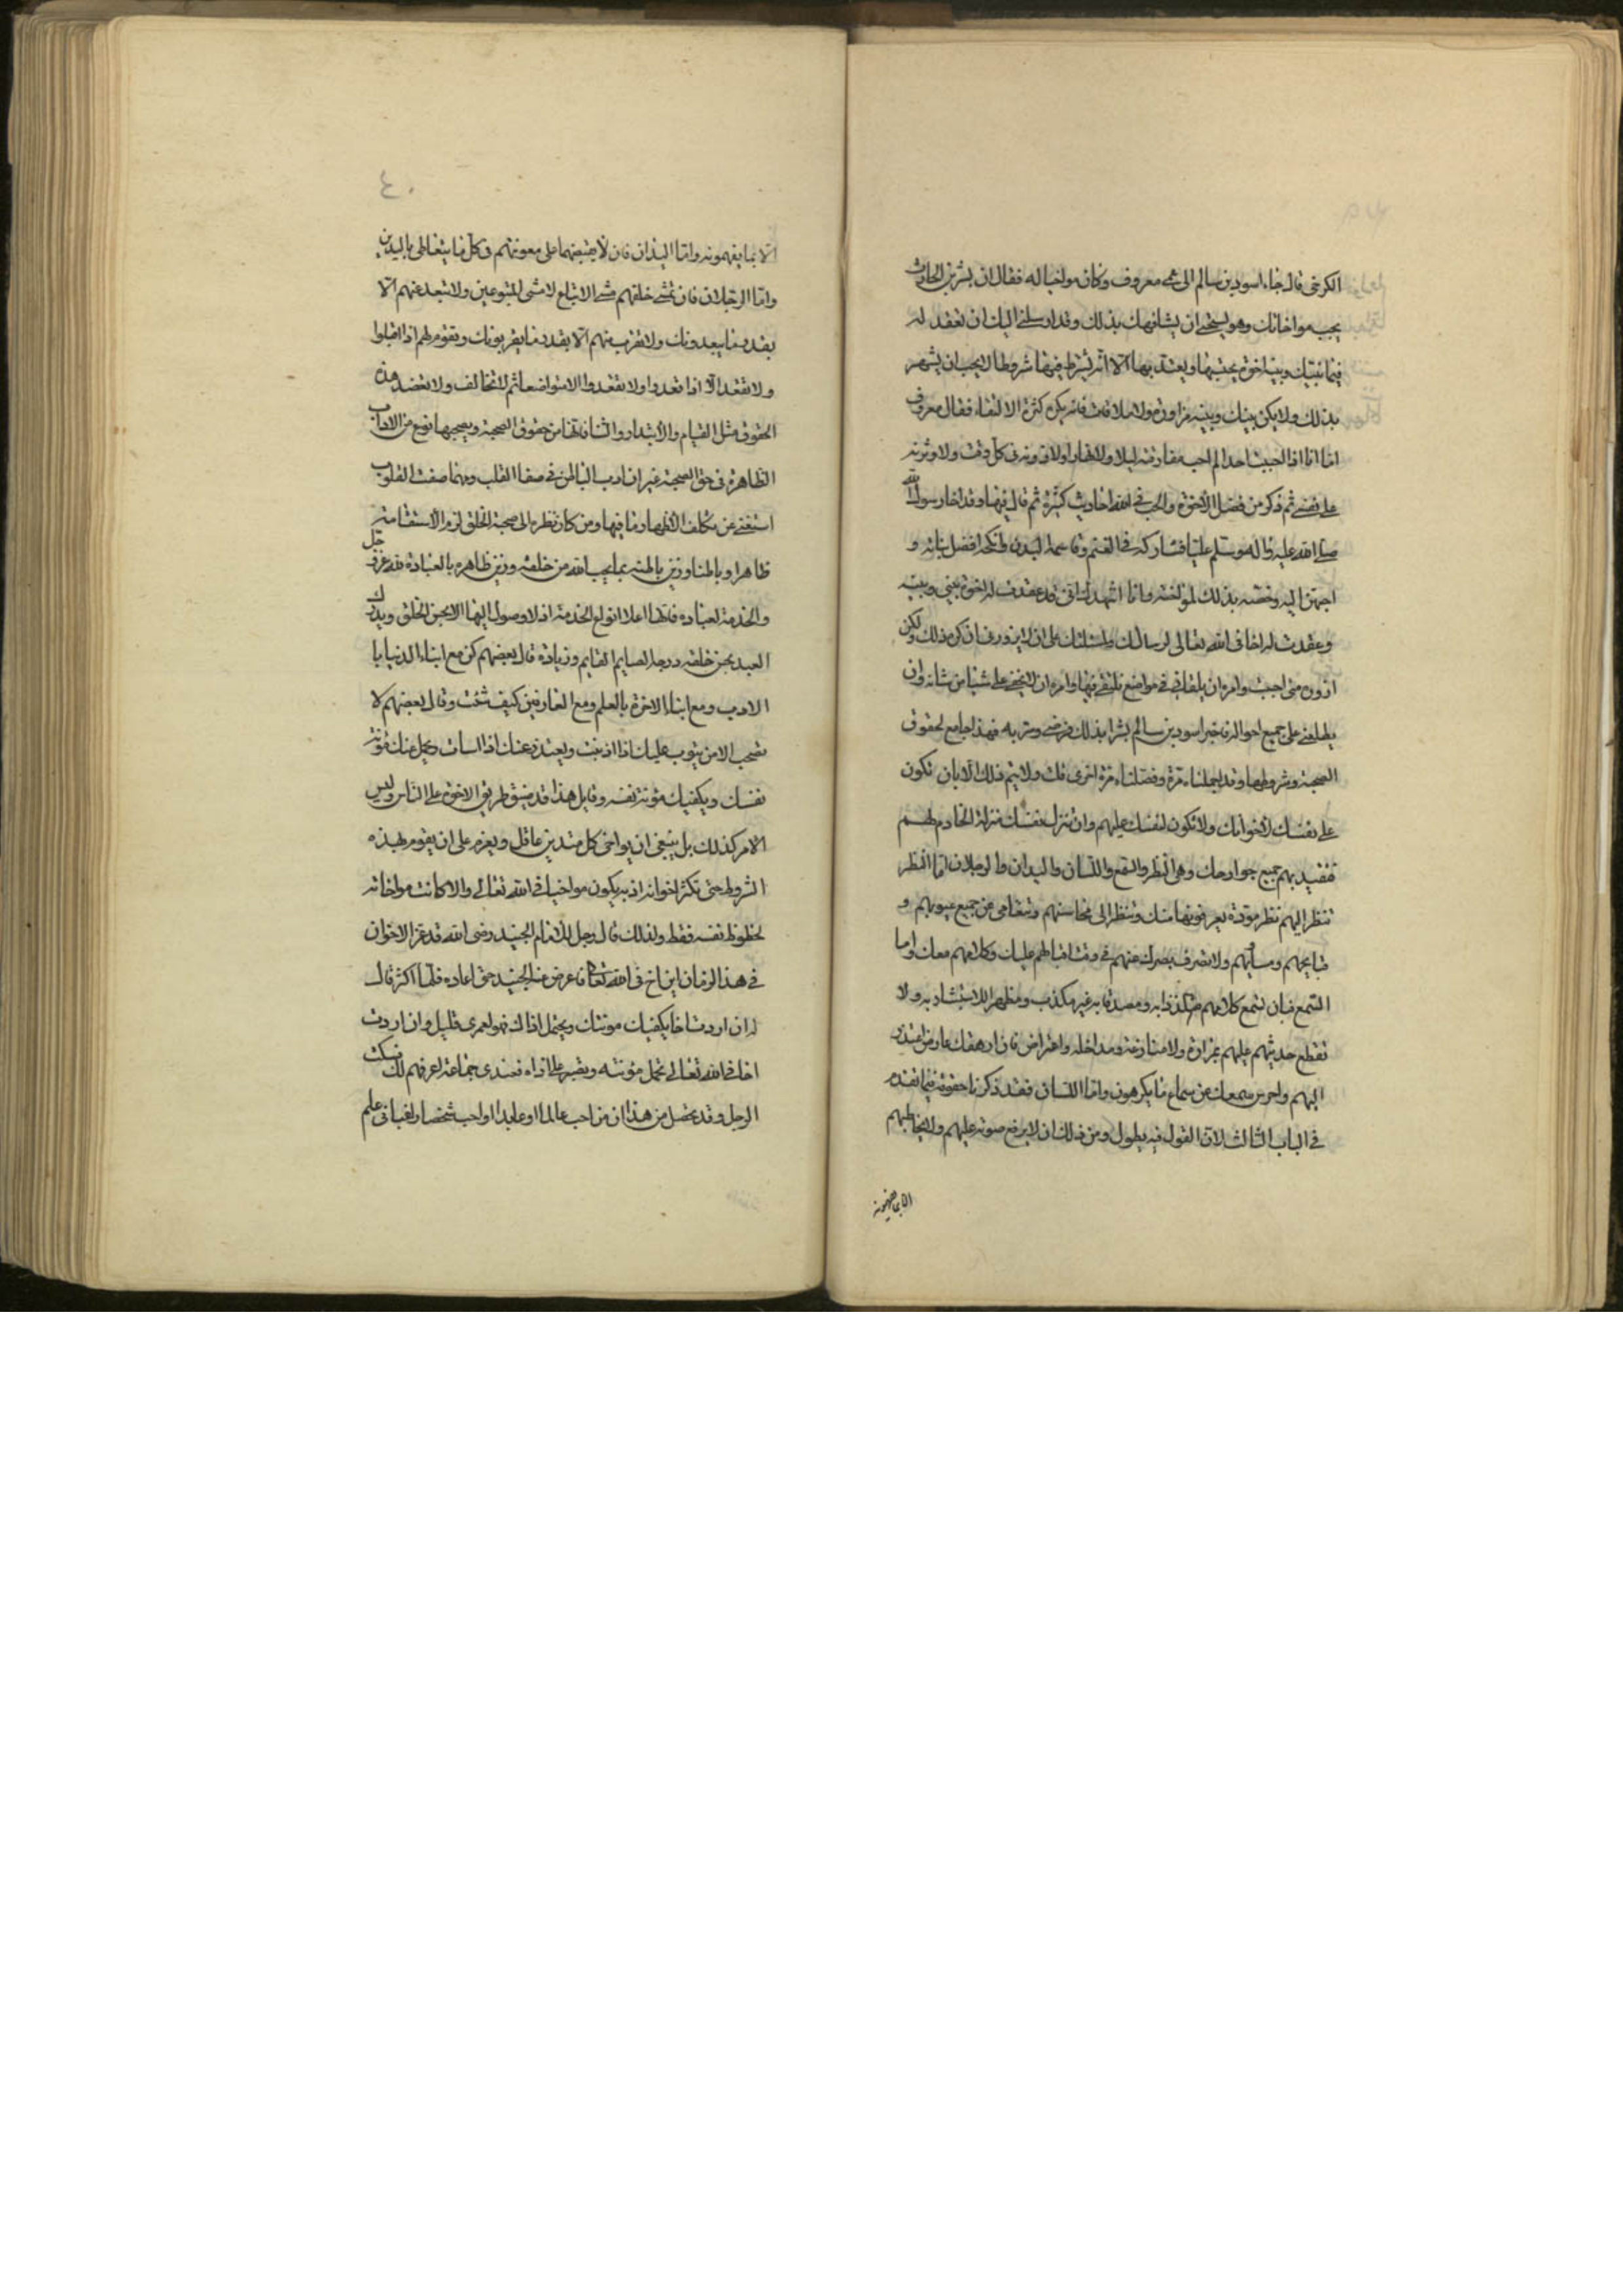 الكرخى قال جاء اسود بن سالم الى عمى معروف وكان مواخيا له فقال ان بشر بن الحارث
يحب مواخاتك وهو يستحى ان يشافهك بذلك وقد ارسلنى اليك ان تعقد له
فيما بينك وبينه اخوة يحتسبها ويعتد بها الا انه يشترط فيها شروطا لا يحب ان يشتهر
بذلك ولا يكون بينك وبينه مزاورة ولا ملاقاة فانه يكره كثرة الالتقاء فقال معروف
اما انا اذا احببت احدا لم احب مفارقته ليلا ولا نهارا ولازرته فى كل وقت ولاوثرته
على نفسى ثم ذكر من فضل الاخوة والحب فى الله احاديث كثيرة ثم قال فيها وقد اخا رسول الله
صلى الله عليه واله وسلم عليا فشاركه فى العلم وقاسمه البدن وانكحه افضل بناته و
احبهن اليه وخصه بذلك لمواخاته وانا اشهدك انى قد عقدت له اخوة بينى وبينه
وعقدت له اخا فى الله تعالى لرسالتك ولمسئلتك على ان لا يزورنى ان كره ذلك ولكن
ازوره متى احببت وامره ان يلقانى فى مواضع نلتقى فيها وامره ان لا يخفى على شيئا من شانه وان
يطلعنى على جميع احواله فاخبر اسود بن سالم بشرا بذلك فرضى وسر به فهذا جامع لحقوق
الصحبة وشروطها وقد اجملناه مرة وفصلناه مرة اخرى فلك ولا يتم ذلك الا بان تكون
على نفسك لاخوانك ولا تكون لنفسك عليهم وان تنزل نفسك منزلة الخادم لهم
فتقيد بهم جميع جوارحك وهى النظر والسمع واللسان واليدان والرجلان اما النظر
تنظر اليهم نظر مودة يعرفونها منك وتنظر الى محاسنهم وتتعامى عن جميع عيوبهم و
قبايحهم ومساويهم ولا تصرف بصرك عنهم فى وقت اقبالهم عليك وكلامهم معك واما
السمع فبان تسمع كلامهم متلذذا به ومصدقا به غير مكذب ومظهرا للاستبشار به ولا
تقطع حديثهم عليهم بمرادة ولا منازعة ومداخلة واعتراض فان ارهقك عارض اعتذرت
اليهم واحرس سمعك عن سماع ما يكرهون واما اللسان فقد ذكرنا حقوقه فيما تقدم
فى الباب الثالث لان القول فيه يطول ومن ذلك ان لا يرفع صوته عليهم ولا يخاطبهم
الا بما يفهمونه
٤٠
الا بما يفهمونه واما اليدان فان لا يقبضهما على معونتهم فى كل ما يتعاطى باليدين
واما الرجلان فان تمشى خلفهم مشى الاتباع لا مشى المتبوعين ولا تتبعد عنهم الا
بقدر ما يبعدونك ولا تقرب منهم الا بقدر ما يقربونك وتقوم لهم اذا اقبلوا
ولا تقعد الا اذا قعدوا ولا تقعدوا الا متواضعا ثم لتخالف ولا تعتضد هذه
الحقوق مثل القيام والابتدار والثناء فانها من حقوق الصحبة ويصحبها نوع من الاداب
الظاهرة فى حق الصحبة غير ان ادب الباطن فى صفا القلب ومهما صفت القلوب
استغنى عن تكلف الاظهار وما فيها ومن كان نظره الى صحبة الخلق لزم الاستقامة
ظاهرا وباطنا وزين باطنه بما يحب الله من خلقه وزين ظاهره بالعبادة لله عز وجل
والخدمة لعباده فانها اعلا انواع الخدمة اذ لا وصول اليها الا بحسن الخلق ويدرك
العبد بحسن خلقه درجة الصايم القايم وزيادة قال بعضهم كن مع ابناء الدنيا با
الادب ومع ابناء الاخرة بالعلم ومع العارفين كيف شئت وقال بعضهم لا
تصحب الا من يتوب عليك اذا اذنبت ويعتذر عنك اذا اسات ويحمل عنك مؤنة
نفسك ويكفيك مؤنة نفسه وقايل هذا قد ضيق طريق الاخوة على الناس وليس
الامر كذلك بل ينبغى ان يواخى كل متدين عاقل ويعزم على ان يقوم بهذه
الشروط حتى تكثر اخوانه اذ به يكون مواخيا فى الله تعالى والا كانت مواخاته
لحظوظ نفسه فقط ولذلك قال رجل للامام الجنيد رضى الله قد عز الاخوان
فى هذا الزمان اين اخ فى الله تعالى فاعرض عنه الجنيد حتى اعاده فلما اكثر قال
له ان اردت اخا يكفيك مونتك ويحتمل اذاك فهو لعمرى قليل وان اردت
اخا فى الله تعالى تحمل مؤنته وتصبر على اذاه فعندى جماعة اعرفهم لك فسكت
الرجل وقد تحصل من هذا ان من احب عالما او عابدا او احب شخصا راغبا فى علم